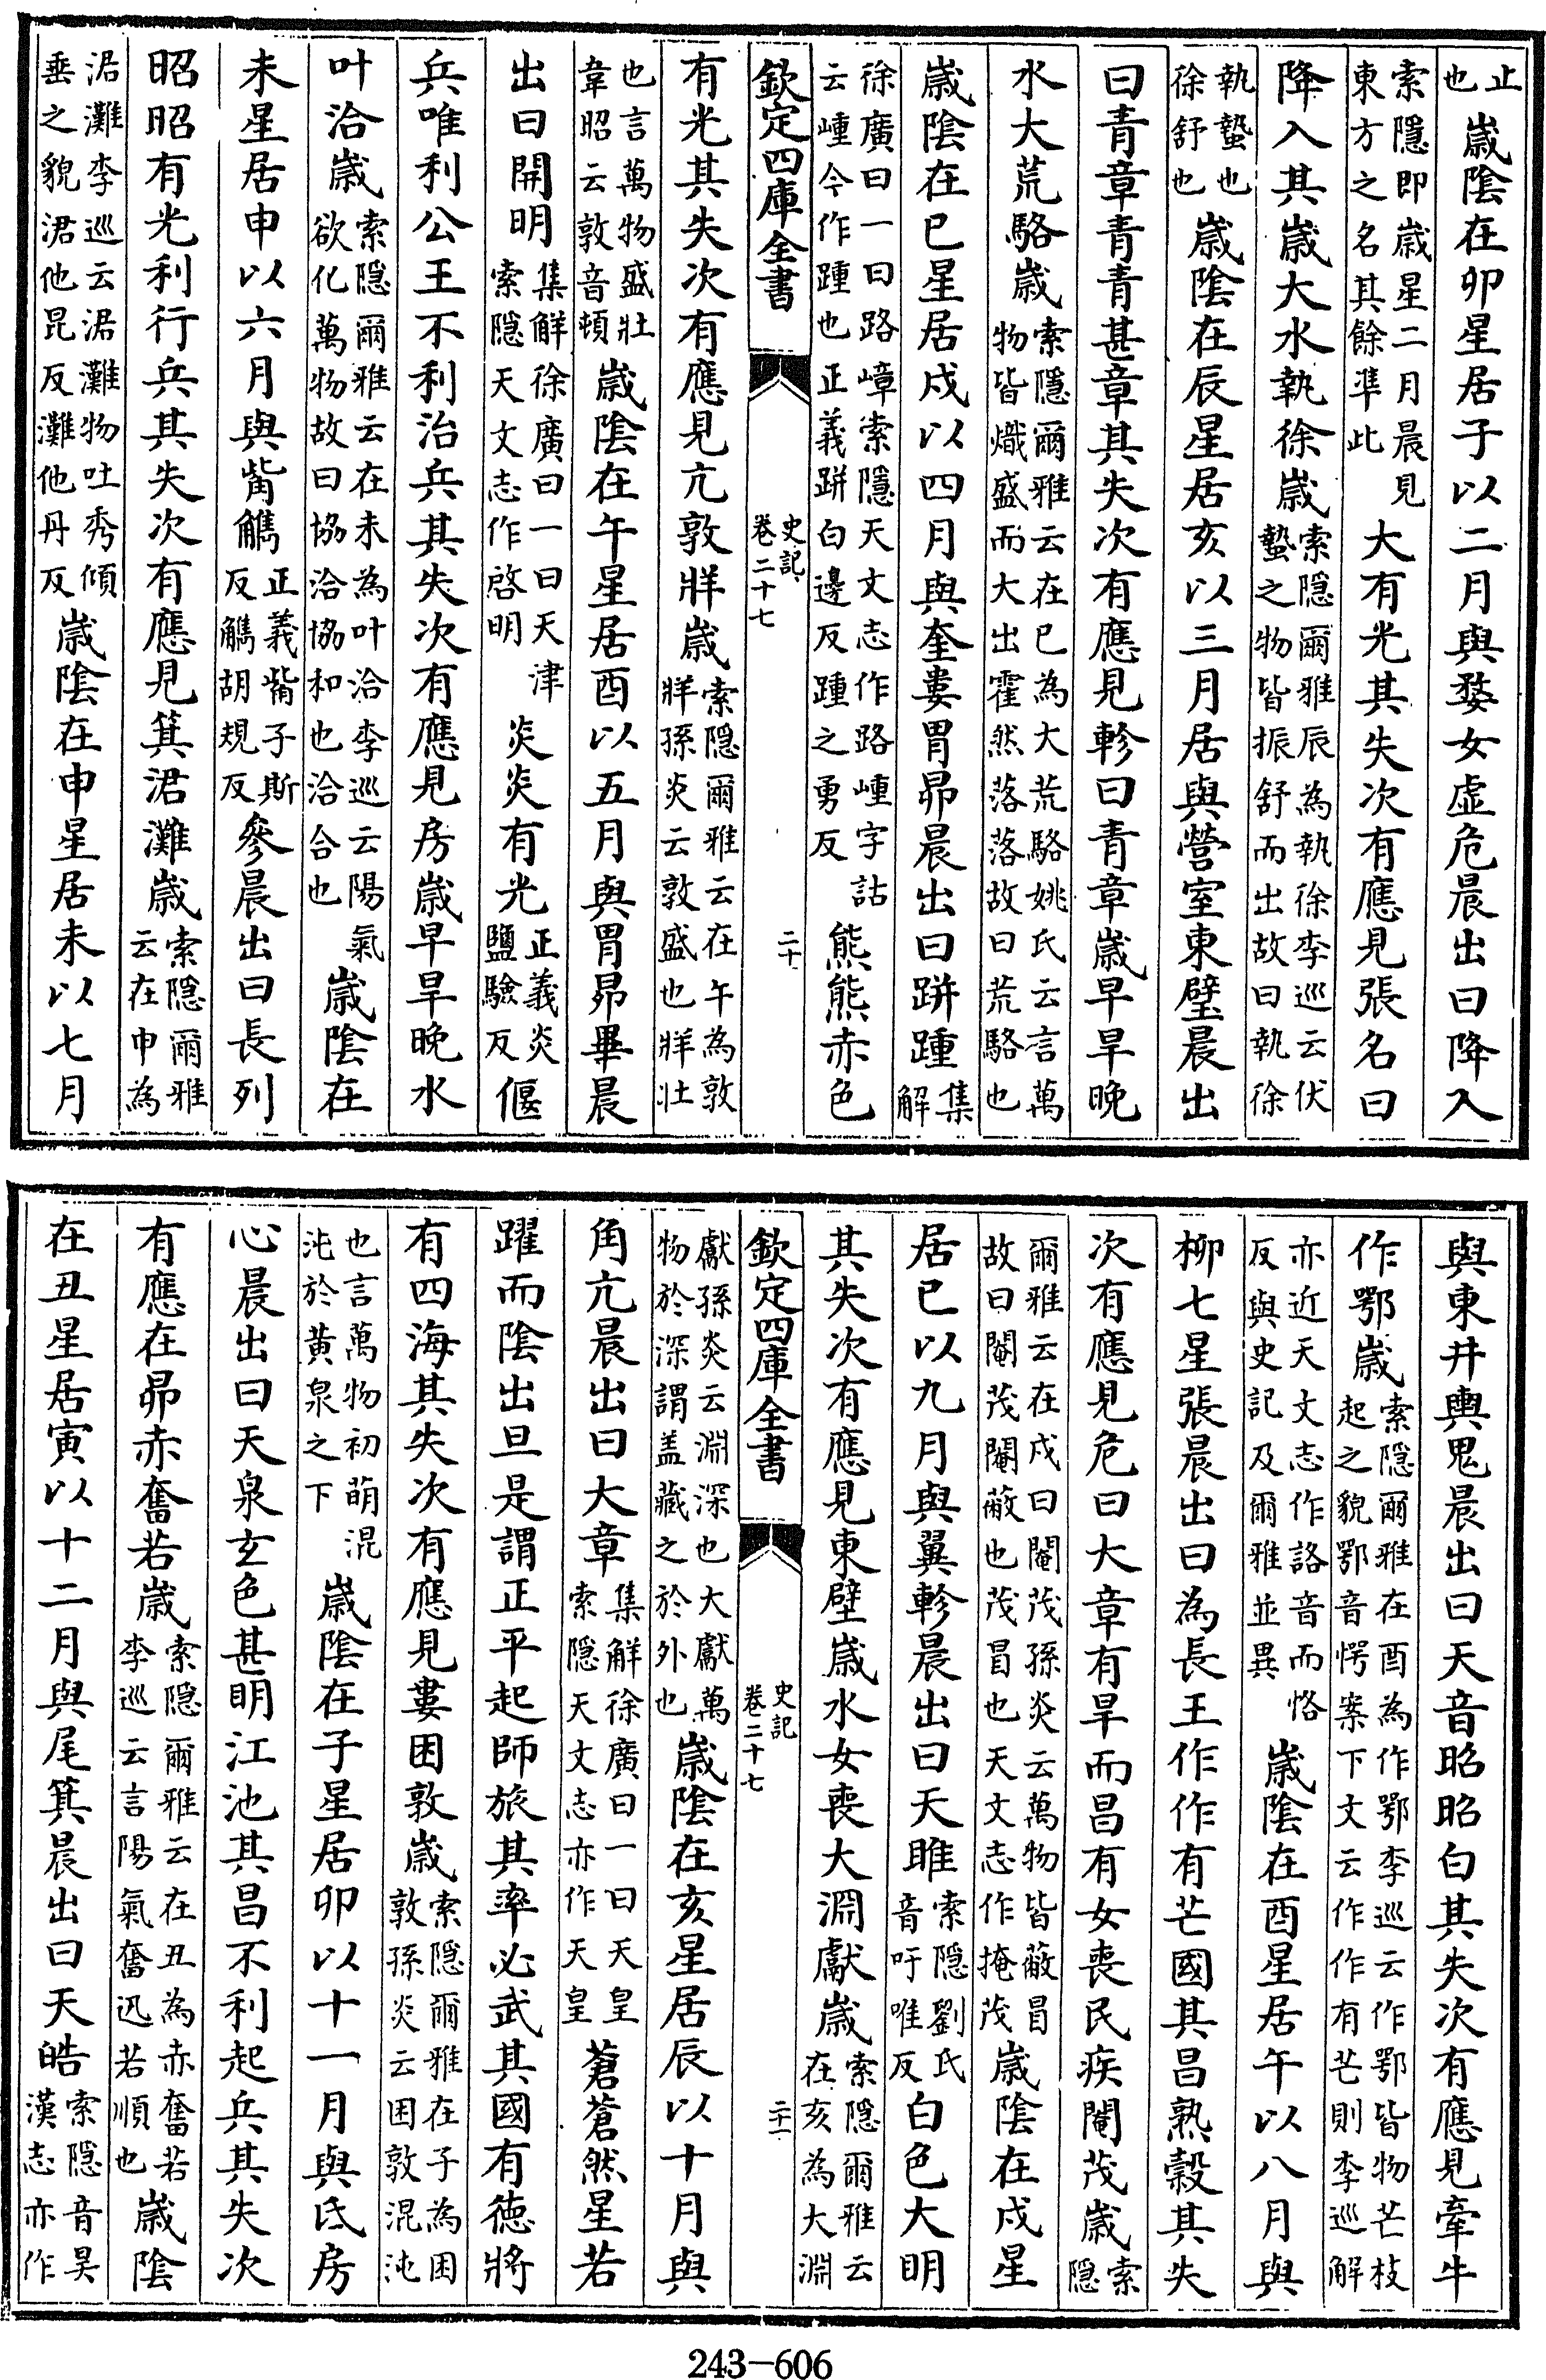 止也歲陰在卯星居子以二月與婺女虛危晨出曰降入
索隱即歲星二月晨見東方之名其餘準此大有光其失次有應見張名曰
降入其歲大水執徐歲索隱爾雅辰為執徐李巡云伏蟄之物皆振舒而出故曰執徐
執蟄也徐舒也歲陰在辰星居亥以三月居與營室東壁晨出
曰青章青青甚章其失次有應見軫曰青章歲早旱晚
水大荒駱歲索隱爾雅云在巳為大荒駱姚氏云言萬物皆熾盛而大出霍然落落故曰荒駱也
歲陰在巳星居戌以四月與奎婁胃昴晨出曰跰踵集解
徐廣曰一曰路嶂索隱天文志作路歱字詁云歱今作踵也正義跰白邊反踵之勇反熊熊赤色
欽定四庫全書 史記卷二十七 二十
有光其失次有應見亢敦牂歲索隱爾雅云在午為敦牂孫炎云敦盛也牂壯
也言萬物盛壯韋昭云敦音頓歲陰在午星居酉以五月與胃昴畢晨
出曰開明集解徐廣曰一曰天津索隱天文志作啓明炎炎有光正義炎鹽驗反偃
兵唯利公王不利治兵其失次有應見房歲早旱晚水
叶洽歲索隱爾雅云在未為叶洽李巡云陽氣欲化萬物故曰協洽協和也洽合也歲陰在
未星居申以六月與觜觿正義觜子斯反觿胡規反參晨出曰長列
昭昭有光利行兵其失次有應見箕涒灘歲索隱爾雅云在申為
涒灘李巡云涒灘物吐秀傾垂之貌涒他昆反灘他丹反歲陰在申星居未以七月
與東井輿鬼晨出曰天音昭昭白其失次有應見牽牛
作鄂歲索隱爾雅在酉為作鄂李巡云作鄂皆物芒枝起之貌鄂音愕案下文云作作有芒則李巡解
亦近天文志作詻音而恪反與史記及爾雅並異歲陰在酉星居午以八月與
柳七星張晨出曰為長王作作有芒國其昌熟穀其失
次有應見危曰大章有旱而昌有女喪民疾閹茂歲索隱
爾雅云在戌曰閹茂孫炎云萬物皆蔽冒故曰閹茂閹蔽也茂冒也天文志作掩茂歲陰在戌星
居巳以九月與翼軫晨出曰天睢索隱劉氏音吁唯反白色大明
其失次有應見東壁歲水女喪大淵獻歲索隱爾雅云在亥為大淵
獻孫炎云淵深也大獻萬物於深謂盖藏之於外也歲陰在亥星居辰以十月與
欽定四庫全書 史記卷二十七 二十一
角亢晨出曰大章集解徐廣曰一曰天皇索隱天文志亦作天皇蒼蒼然星若
躍而陰出旦是謂正平起師旅其率必武其國有德將
有四海其失次有應見婁困敦歲索隱爾雅在子為困敦孫炎云困敦混沌
也言萬物初萌混沌於黃泉之下歲陰在子星居卯以十一月與氐房
心晨出曰天泉玄色甚明江池其昌不利起兵其失次
有應在昴赤奮若歲索隱爾雅云在丑為赤奮若李巡云言陽氣奮迅若順也歲陰
在丑星居寅以十二月與尾箕晨出曰天皓索隱音昊漢志亦作
243-606